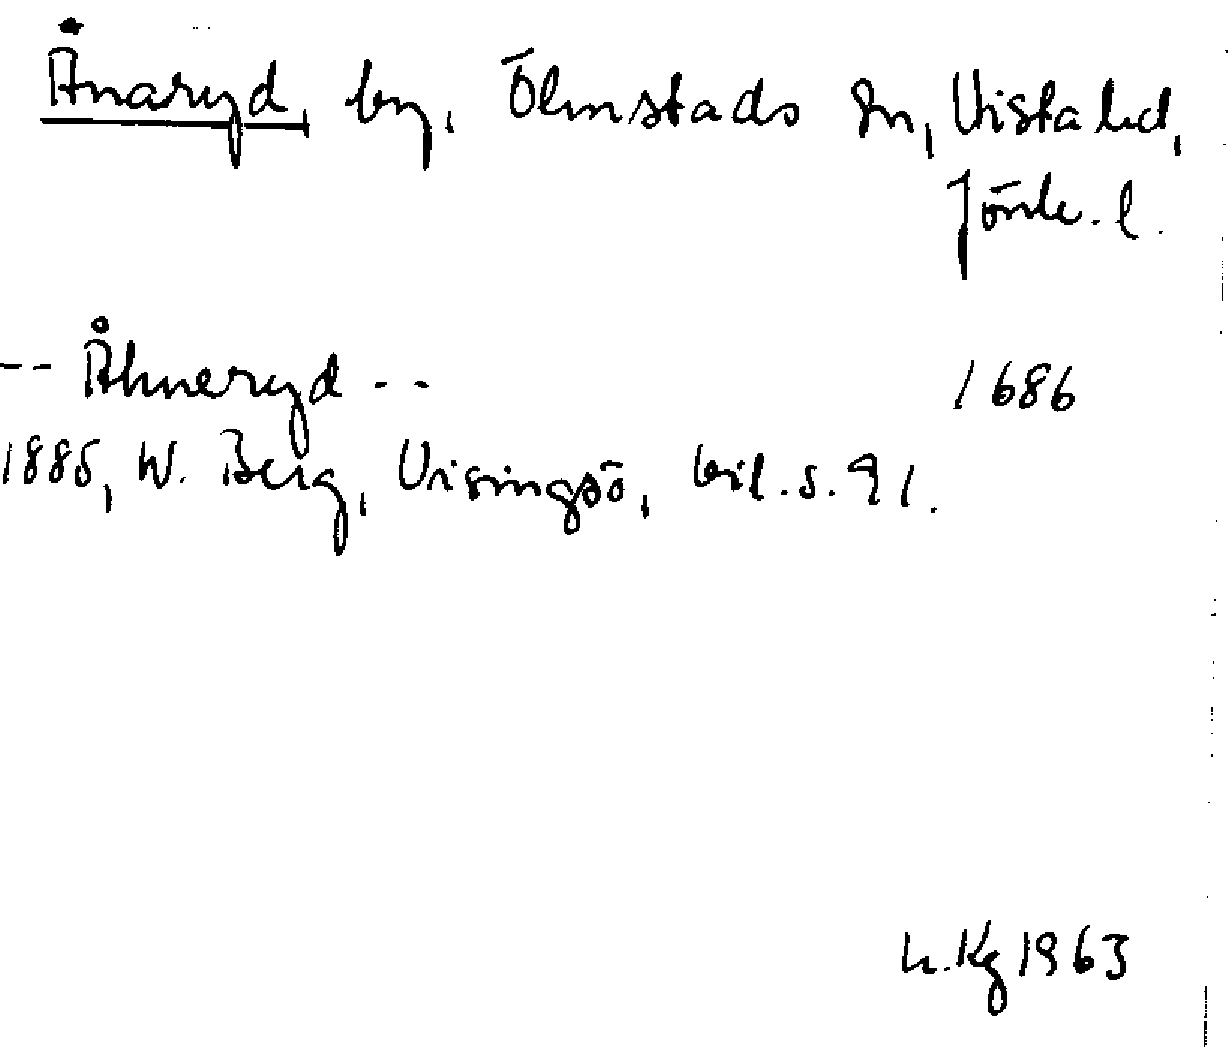 Ånaryd, by, Ölmstads sn, Vista hd,
Jönk. l.
-- Åhneryd -- 1686
1885, W. Berg, Visingsö, bil. s. 91.
h. Kg 1963